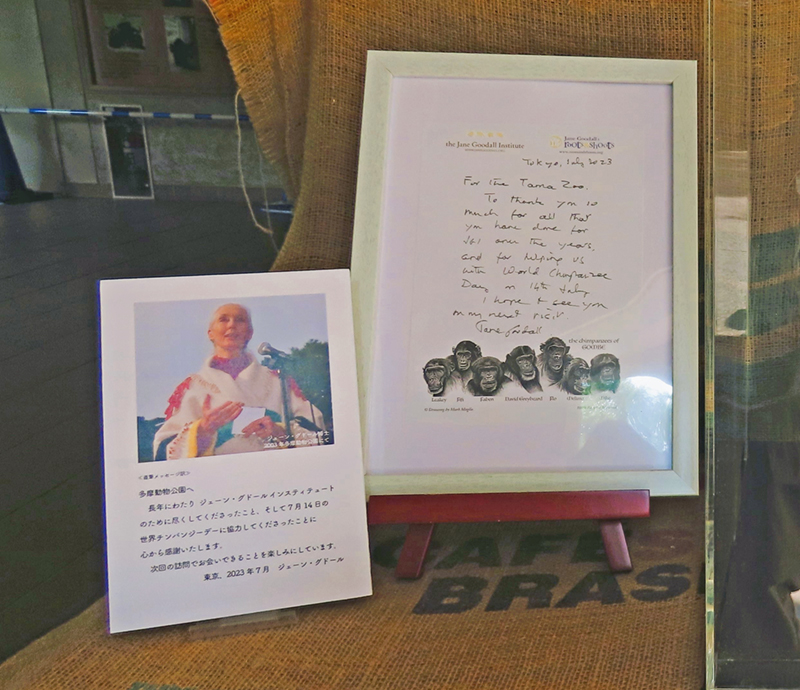 ジェーン・グドール博士
2023年多摩動物公園にて
<直筆メッセージ訳>
多摩動物公園へ
長年にわたり ジェーン・グドールインスティテュート
のために尽くしてくださったこと、そして7月14日の
世界チンパンジーデーに協力してくださったことに
心から感謝いたします。
次回の訪問でお会いできることを楽しみにしています。
東京、2023年7月 ジェーン・グドール
the Jane Goodall Institute
Jane Goodall's
roots & shoots
Tokyo, July 2023
For the Tama Zoo.
To thank you so
much for all that
you have done for
JGI over the years.
and for helping us
with World Chimpanzee
Day on 14th July
I hope to see you
on my next visit
Jane Goodall
the chimpanzees of
GOMBE
Fifi
David Greybeard
Flo
CAFE
BRAS